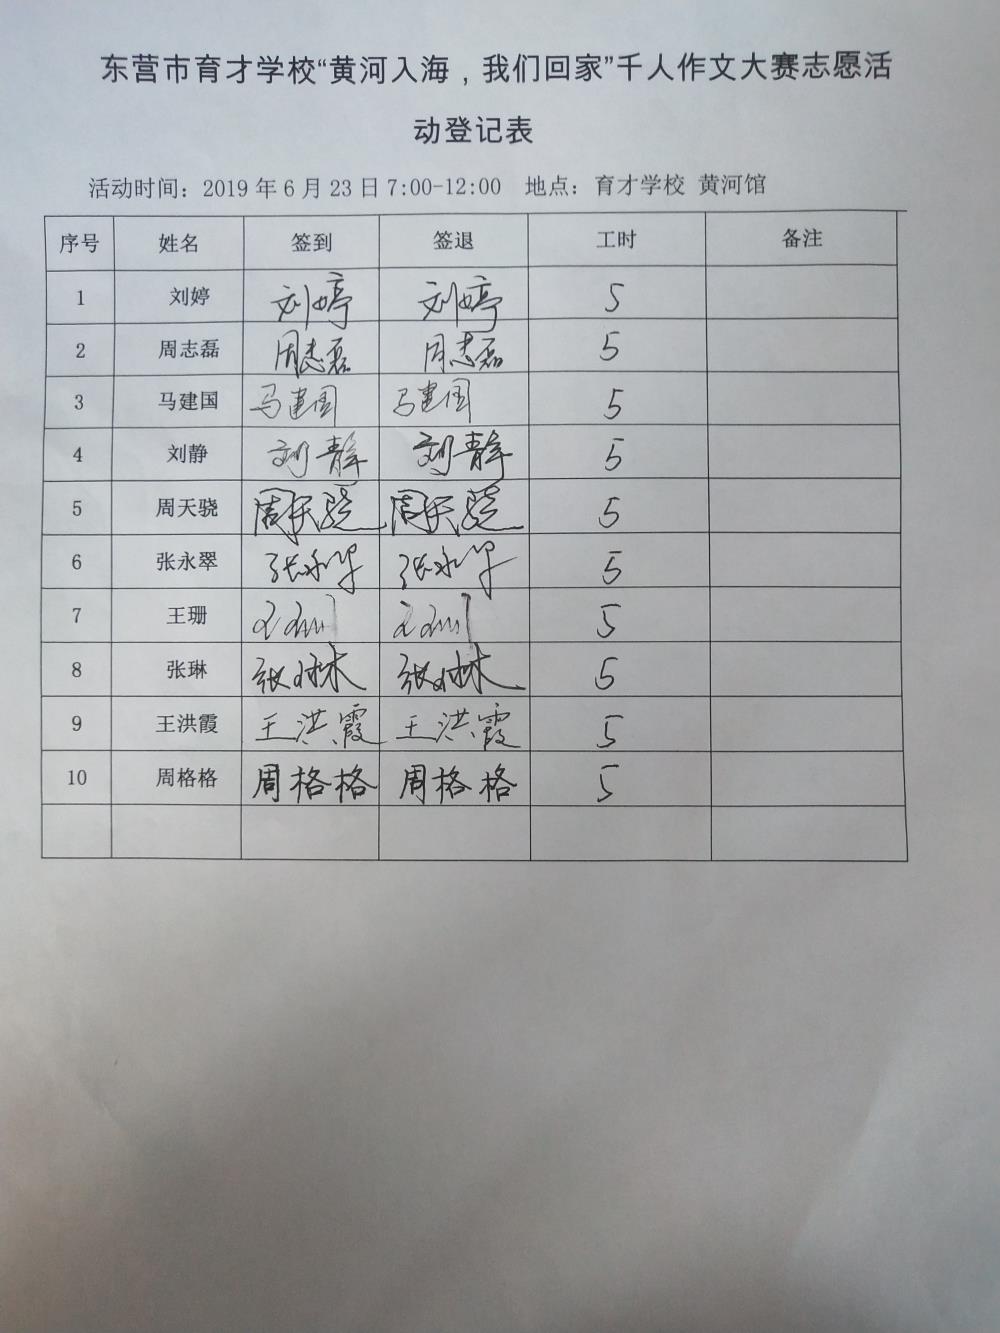 东营市育才学校“黄河入海，我们回家”千人作文大赛志愿活
动登记表
活动时间：2019 年 6 月 23 日 7:00-12:00 地点：育才学校 黄河馆
序号 姓名 签到 签退 工时 备注
1 刘婷 刘婷 刘婷 5
2 周志磊 周志磊 周志磊 5
3 马建国 马建国 马建国 5
4 刘静 刘静 刘静 5
5 周天骁 周天骁 周天骁 5
6 张永翠 张永翠 张永翠 5
7 王珊 王珊 王珊 5
8 张琳 张琳 张琳 5
9 王洪霞 王洪霞 王洪霞 5
10 周格格 周格格 周格格 5